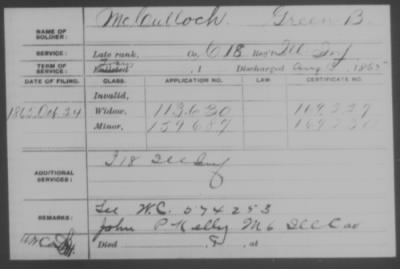 McCulloch, Green B.
NAME OF SOLDIER:
SERVICE: Late rank, Co. C 18 Reg't Ill Inf
TERM OF SERVICE: Enlisted , 1 Discharged Aug 1865
DATE OF FILING. CLASS. APPLICATION NO. LAW. CERTIFICATE NO.
Invalid,
1865 Oct 24 Widow, 113.630
Minor, 159.687
ADDITIONAL SERVICES: F 18 Ill Inf
REMARKS: See W.C. 574253
John P Kelly M 6 Ill Cav
Died , at